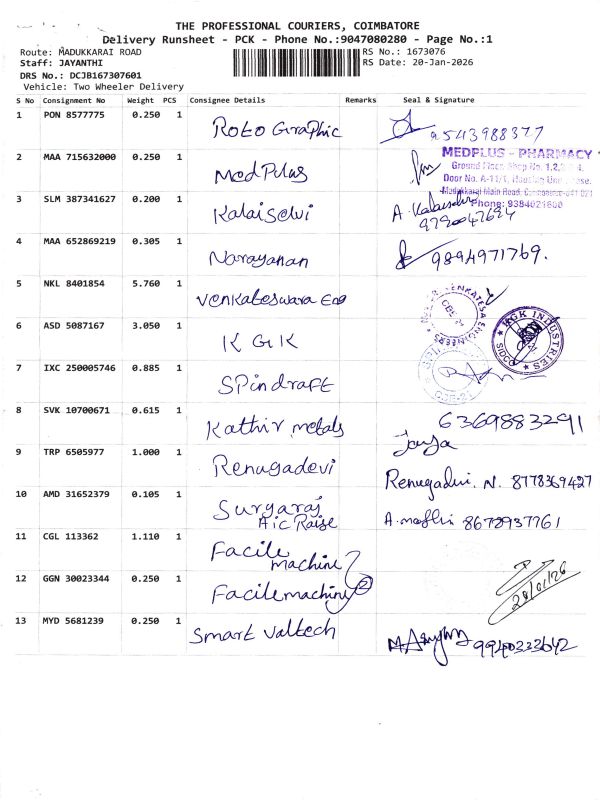 THE PROFESSIONAL COURIERS, COIMBATORE
Delivery Runsheet - PCK - Phone No.:9047080280 - Page No.:1
Route: MADUKKARAI ROAD
RS No.: 1673076
Staff: JAYANTHI
RS Date: 20-Jan-2026
DRS No.: DCJB167307601
Vehicle: Two Wheeler Delivery
S No Consignment No Weight PCS Consignee Details Remarks Seal & Signature
1 PON 8577775 0.250 1 Roto Graphic 9543988377
2 MAA 715632000 0.250 1 MedPlus
MEDPLUS - PHARMACY
Ground Floor, Shop No. 1,2,3,4,
Door No. A-11/1, Housing Unit,
Madukkarai Main Road, Coimbatore-641 021
Phone: 9384021600
3 SLM 387341627 0.200 1 Kalaiselvi A. Kalaiselvi
9790047694
4 MAA 652869219 0.305 1 Narayanan 9894971769.
5 NKL 8401854 5.760 1 Venkateswara Eng
6 ASD 5087167 3.050 1 K G K
KGK INDUSTRIES
SIDCO
7 IXC 250005746 0.885 1 Spindraft
8 SVK 10700671 0.615 1 Kathir metals 6369883291
9 TRP 6505977 1.000 1 Renugadevi
Renugadevi. N. 8778369427
10 AMD 31652379 0.105 1 Suryaraj
Aic Raise
8672937761
11 CGL 113362 1.110 1 Facile
machine
12 GGN 30023344 0.250 1 Facile machine 2
13 MYD 5681239 0.250 1 Smart valtech 9940333642